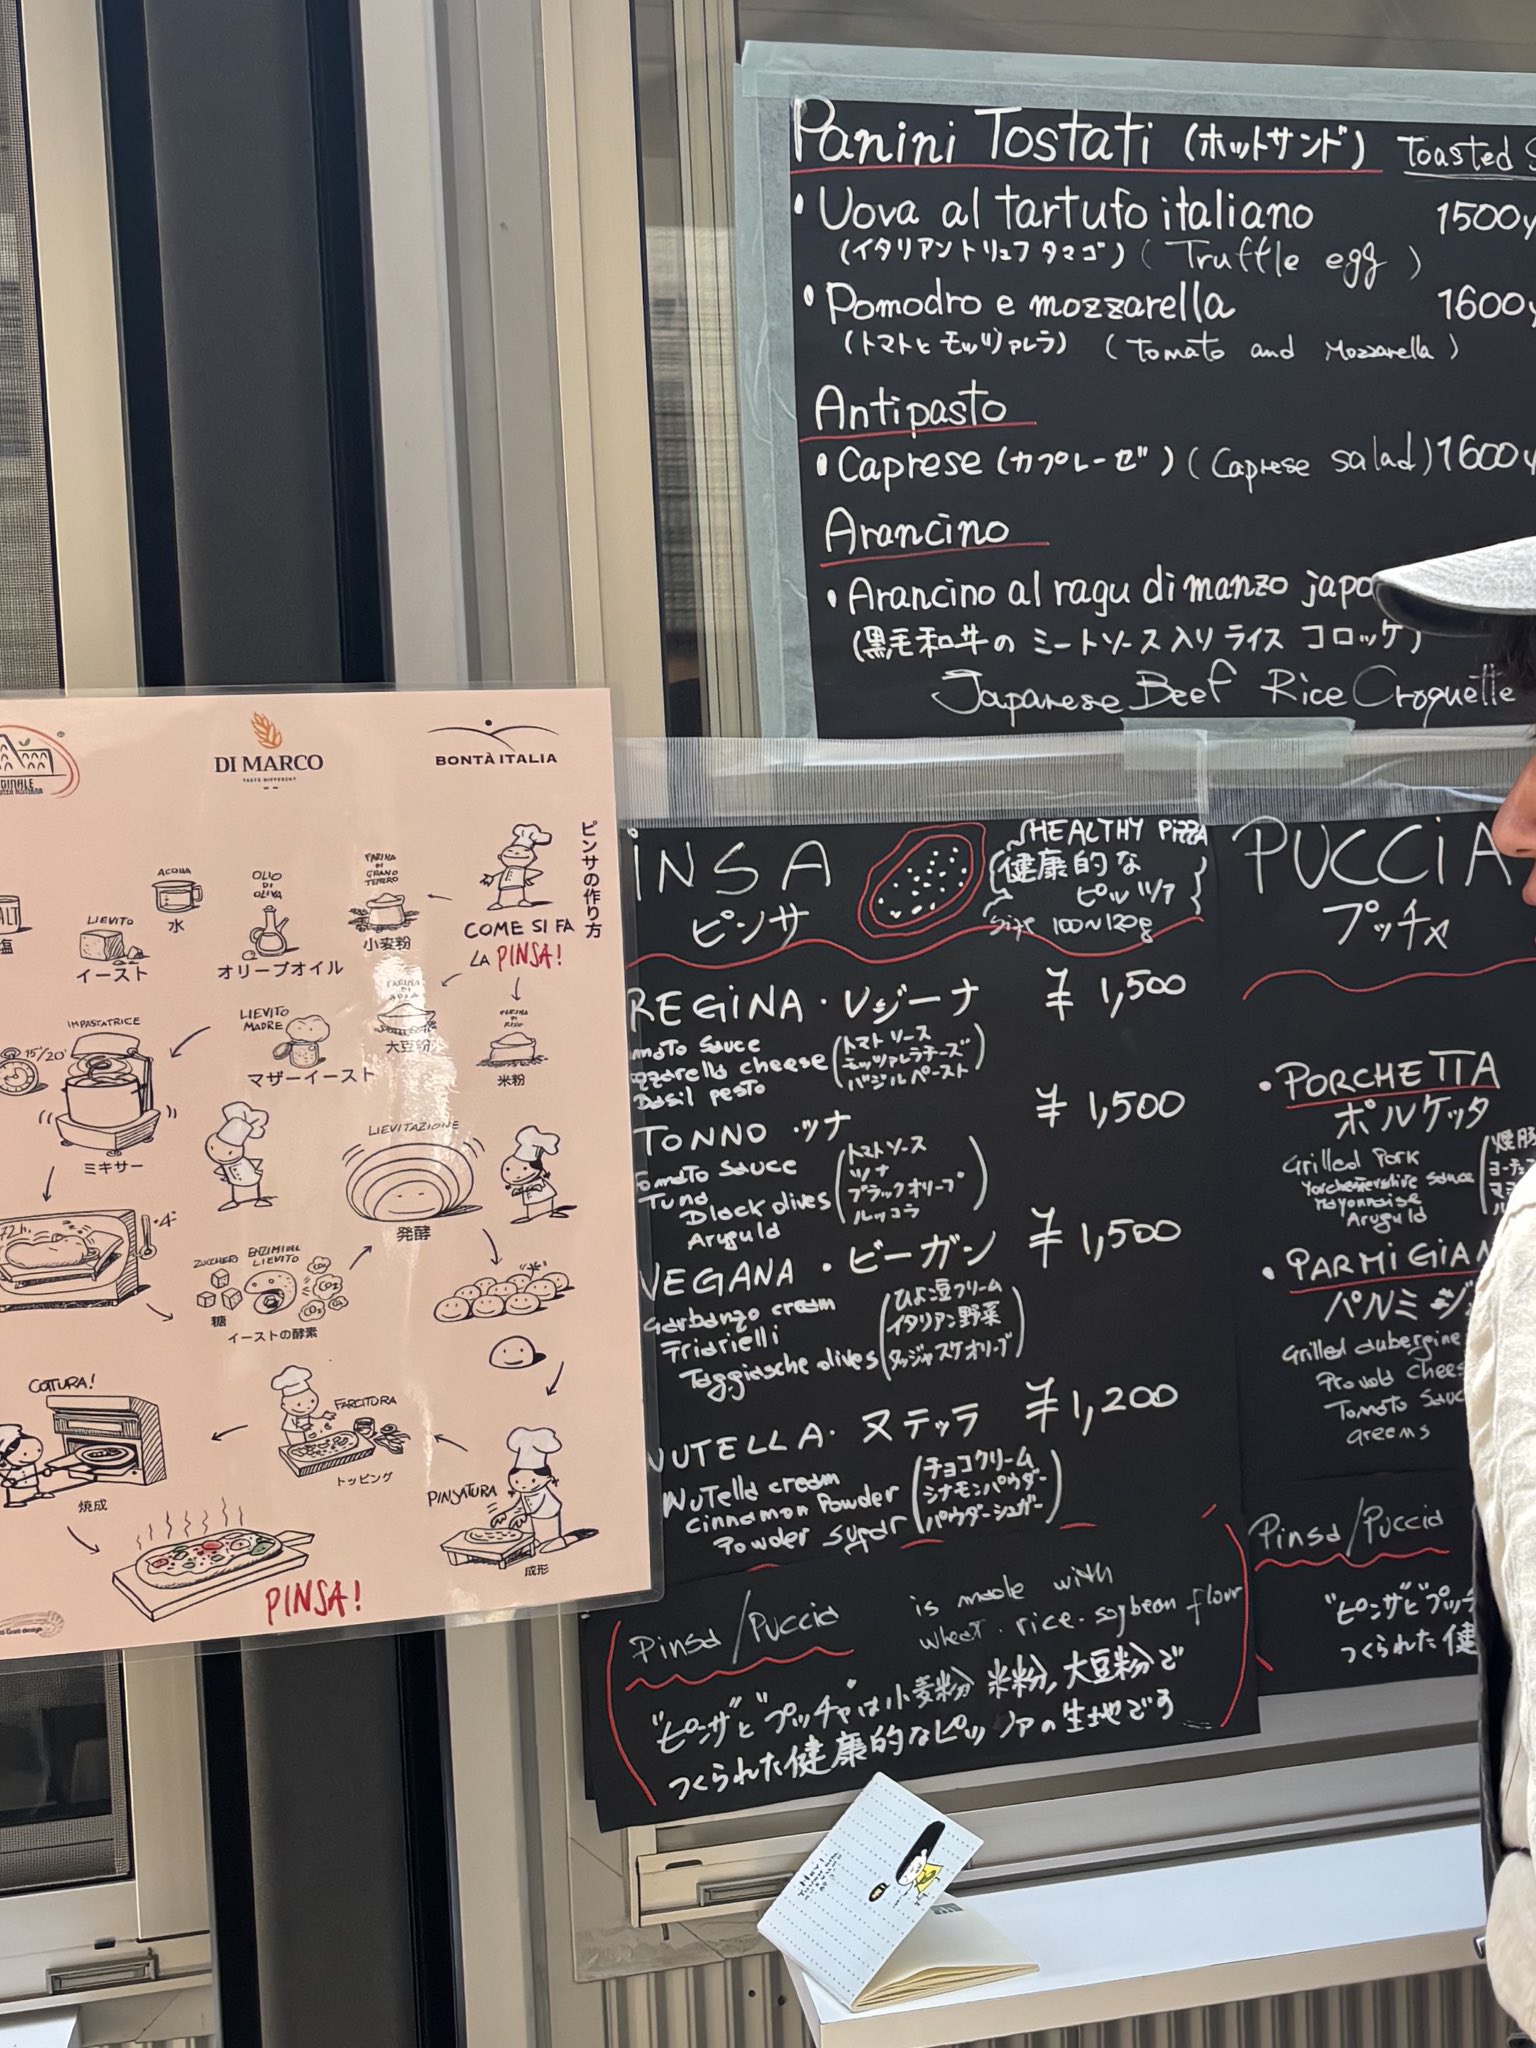 Panini Tostati (ホットサンド) Toasted
• Uova al tartufo italiano 1500y
(イタリアントリュフタマゴ) (Truffle egg)
• Pomodro e mozzarella 1600y
(トマトとモッツァレラ) (Tomato and Mozzarella)
Antipasto
• Caprese (カプレーゼ) (Caprese salad) 1600y
Arancino
• Arancino al ragu di manzo japo
(黒毛和牛の ミートソース入りライス コロッケ)
Japanese Beef Rice Croquette
DI MARCO
TASTE DIFFERENT
BONTÀ ITALIA
ピンサの作り方
COME SI FA
LA PINSA!
FARINA DI GRANO TENERO
小麦粉
OLIO DI OLIVA
オリーブオイル
ACQUA
水
LIEVITO
イースト
塩
FARINA DI SOIA
大豆粉
FARINA DI RISO
米粉
LIEVITO MADRE
マザーイースト
IMPASTATRICE
15'/20'
ミキサー
72h.
+4°
ZUCCHERO
糖
ENZIMI DEL LIEVITO
CO2
イーストの酵素
LIEVITAZIONE
発酵
PINSATURA
成形
FARCITURA
トッピング
COTTURA!
焼成
PINSA!
iNSA
ピンサ
HEALTHY PIZZA
健康的な
ピッツァ
Size 100~120g
REGiNA・レジーナ ¥1,500
omato sauce
zzarella cheese
Basil pesto
(トマトソース
モッツァレラチーズ
バジルペースト)
TONNO・ツナ ¥1,500
Tomato sauce
Tuna
Black olives
Arugula
(トマトソース
ツナ
ブラックオリーブ
ルッコラ)
VEGANA・ビーガン ¥1,500
Garbanzo cream
Friarielli
Taggiasche olives
(ひよこ豆クリーム
イタリアン野菜
タッジャスケオリーブ)
NUTELLA・ヌテッラ ¥1,200
Nutella cream
cinnamon Powder
Powder sugar
(チョコクリーム
シナモンパウダー
パウダーシュガー)
Pinsa/Puccia is made with
wheat・rice・soybean flour
"ピンサ"と"プッチャ"は小麦粉 米粉、大豆粉で
つくられた健康的なピッツァの生地です
PUCCiA
プッチャ
• PORCHETTA
ポルケッタ
Grilled Pork
Mayonnaise
Arugula
• PARMiGIAN
パルミジ
Grilled aubergine
Provola Chees
Tomato Sauc
Greens
Pinsa/Puccia
"ピンザ"と"プッ
つくられた健